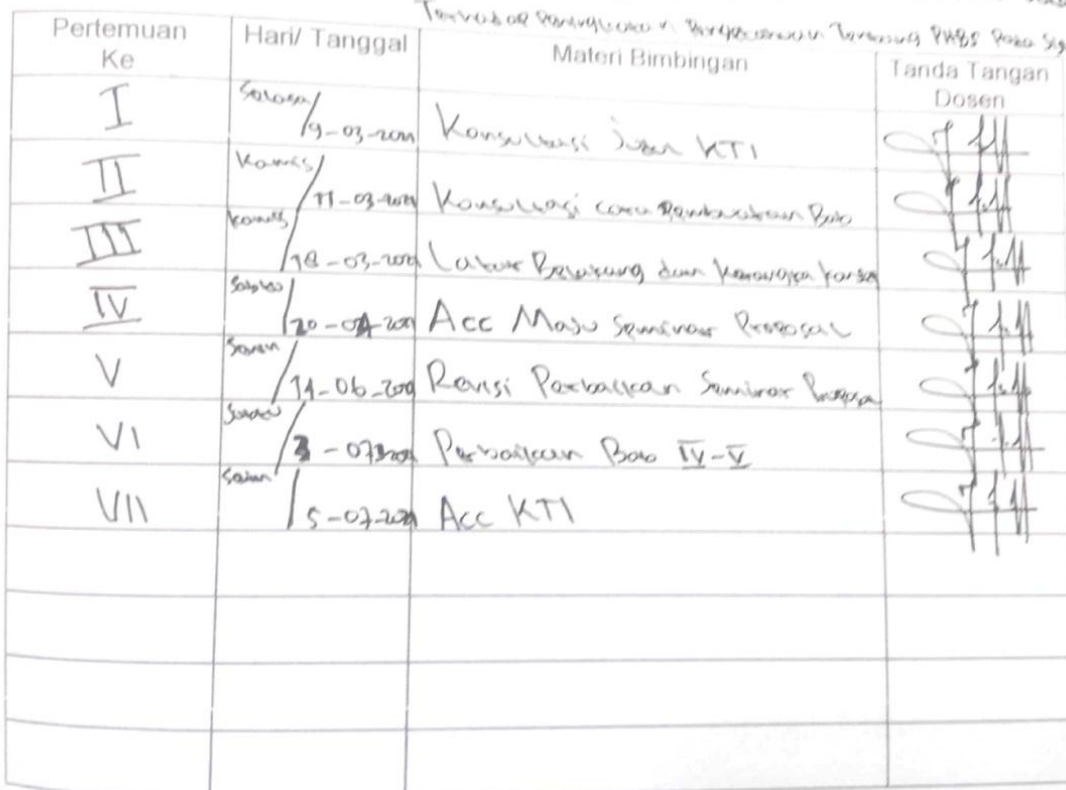 Terhadap Peningkatan Pengetahuan Tentang PHBS Pada
Pertemuan Ke
Hari/ Tanggal
Materi Bimbingan
Tanda Tangan Dosen
I Selasa/ 9-03-2021 Konsultasi Judul KTI
II Kamis/ 11-03-2021 Konsultasi cara Pembuatan Bab
III Kamis/ 18-03-2021 Latar Belakang dan Kerangka
IV 20-04-2021 Acc Maju Seminar Proposal
V Senin/ 14-06-2021 Revisi Perbaikan Seminar
VI 3-07-2021 Perbaikan Bab IV-V
VII Senin/ 5-07-2021 Acc KTI